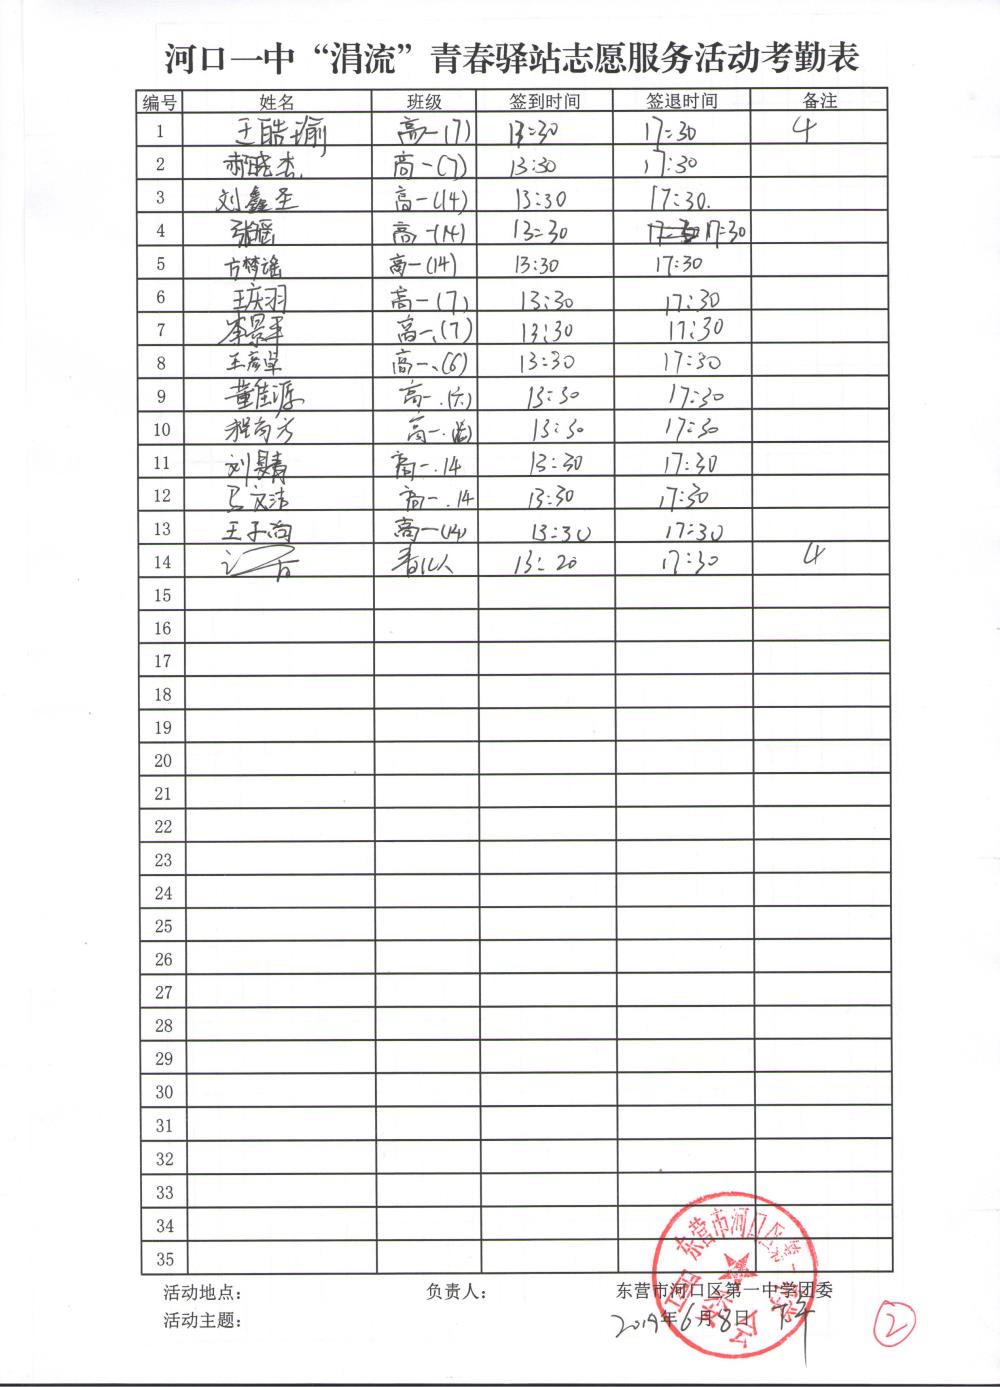 河口一中“涓流”青春驿站志愿服务活动考勤表
编号 姓名 班级 签到时间 签退时间 备注
1 王皓瑜 高一(7) 13:30 17:30 4
2 郝晓杰 高一(7) 13:30 17:30
3 刘鑫圣 高一(14) 13:30 17:30.
4 张瑶 高一(14) 13:30 17:30
5 方梦谣 高一(14) 13:30 17:30
6 王庆羽 高一(7) 13:30 17:30
7 李景平 高一、(7) 13:30 17:30
8 王彦卓 高一、(6) 13:30 17:30
9 董佳源 高一.(六) 13:30 17:30
10 高一. 13:30 17:30
11 刘 高一.14 13:30 17:30
12 马文洁 高一.14 13:30 17:30
13 王子尚 高一(14) 13:30 17:30
14 13:20 17:30 4
15
16
17
18
19
20
21
22
23
24
25
26
27
28
29
30
31
32
33
34
35
活动地点: 负责人: 东营市河口区第一中学团委
活动主题: 2019年6月8日 下午
2